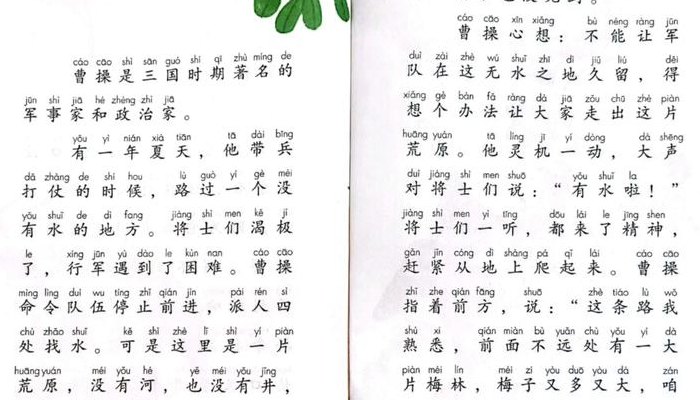 cáo cāo shì sān guó shí qī zhù míng de
曹操是三国时期著名的
jūn shì jiā hé zhèng zhì jiā
军事家和政治家。
yǒu yì nián xià tiān tā dài bīng
有一年夏天，他带兵
dǎ zhàng de shí hou lù guò yí gè méi
打仗的时候，路过一个没
yǒu shuǐ de dì fang jiàng shì men kě jí
有水的地方。将士们渴极
le xíng jūn yù dào le kùn nan cáo cāo
了，行军遇到了困难。曹操
mìng lìng duì wu tíng zhǐ qián jìn pài rén sì
命令队伍停止前进，派人四
chù zhǎo shuǐ kě shì zhè lǐ shì yí piàn
处找水。可是这里是一片
huāng yuán méi yǒu hé yě méi yǒu jǐng
荒原，没有河，也没有井，
cáo cāo xīn xiǎng bù néng ràng jūn
曹操心想：不能让军
duì zài zhè wú shuǐ zhī dì jiǔ liú děi
队在这无水之地久留，得
xiǎng gè bàn fǎ ràng dà jiā zǒu chū zhè piàn
想个办法让大家走出这片
huāng yuán tā líng jī yí dòng dà shēng
荒原。他灵机一动，大声
duì jiàng shì men shuō yǒu shuǐ la
对将士们说：“有水啦！”
jiàng shì men yì tīng dōu lái le jīng shen
将士们一听，都来了精神，
gǎn jǐn cóng dì shàng pá qǐ lái cáo cāo
赶紧从地上爬起来。曹操
zhǐ zhe qián fāng shuō zhè tiáo lù wǒ
指着前方，说：“这条路我
shú xī qián miàn bù yuǎn chù yǒu yí dà
熟悉，前面不远处有一大
piàn méi lín méi zi yòu duō yòu dà zán
片梅林，梅子又多又大，咱